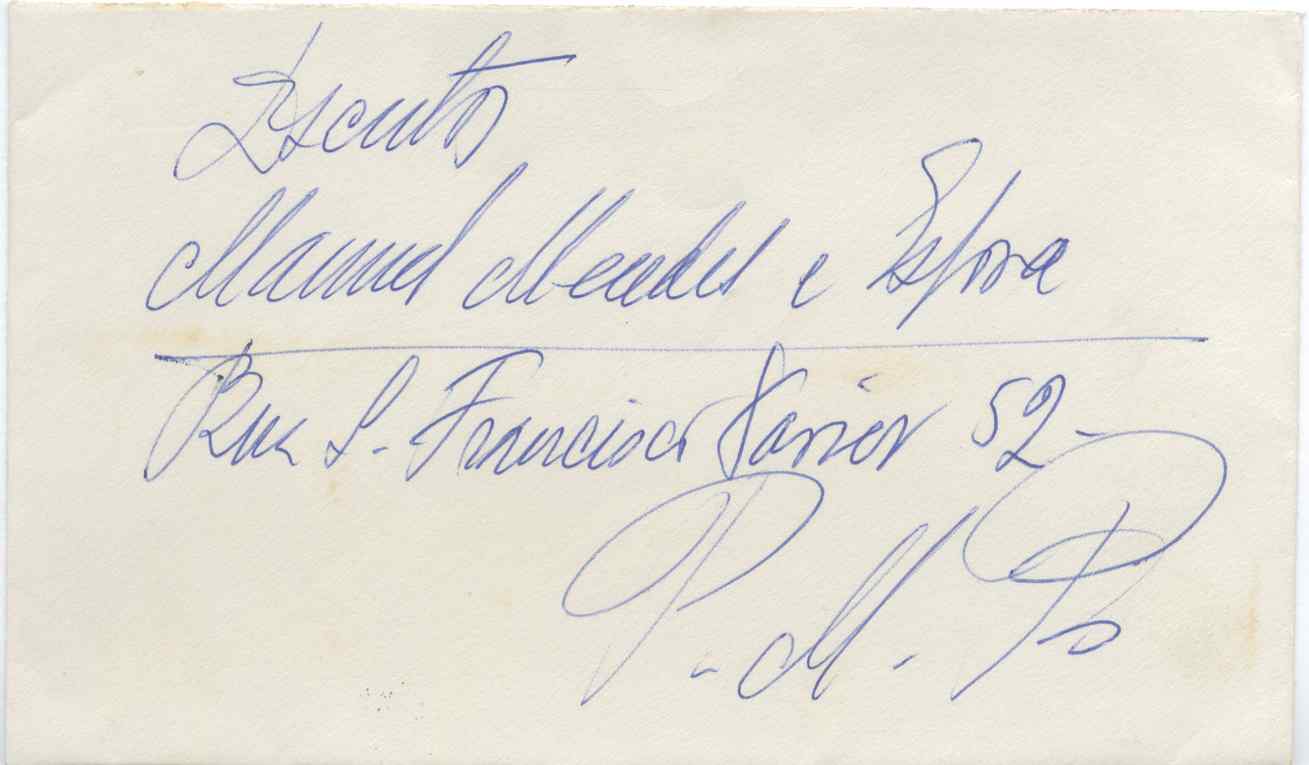 Escritor
Manuel Mendes e Esposa
Rua S. Francisco Xavier 52-
P. M. P.